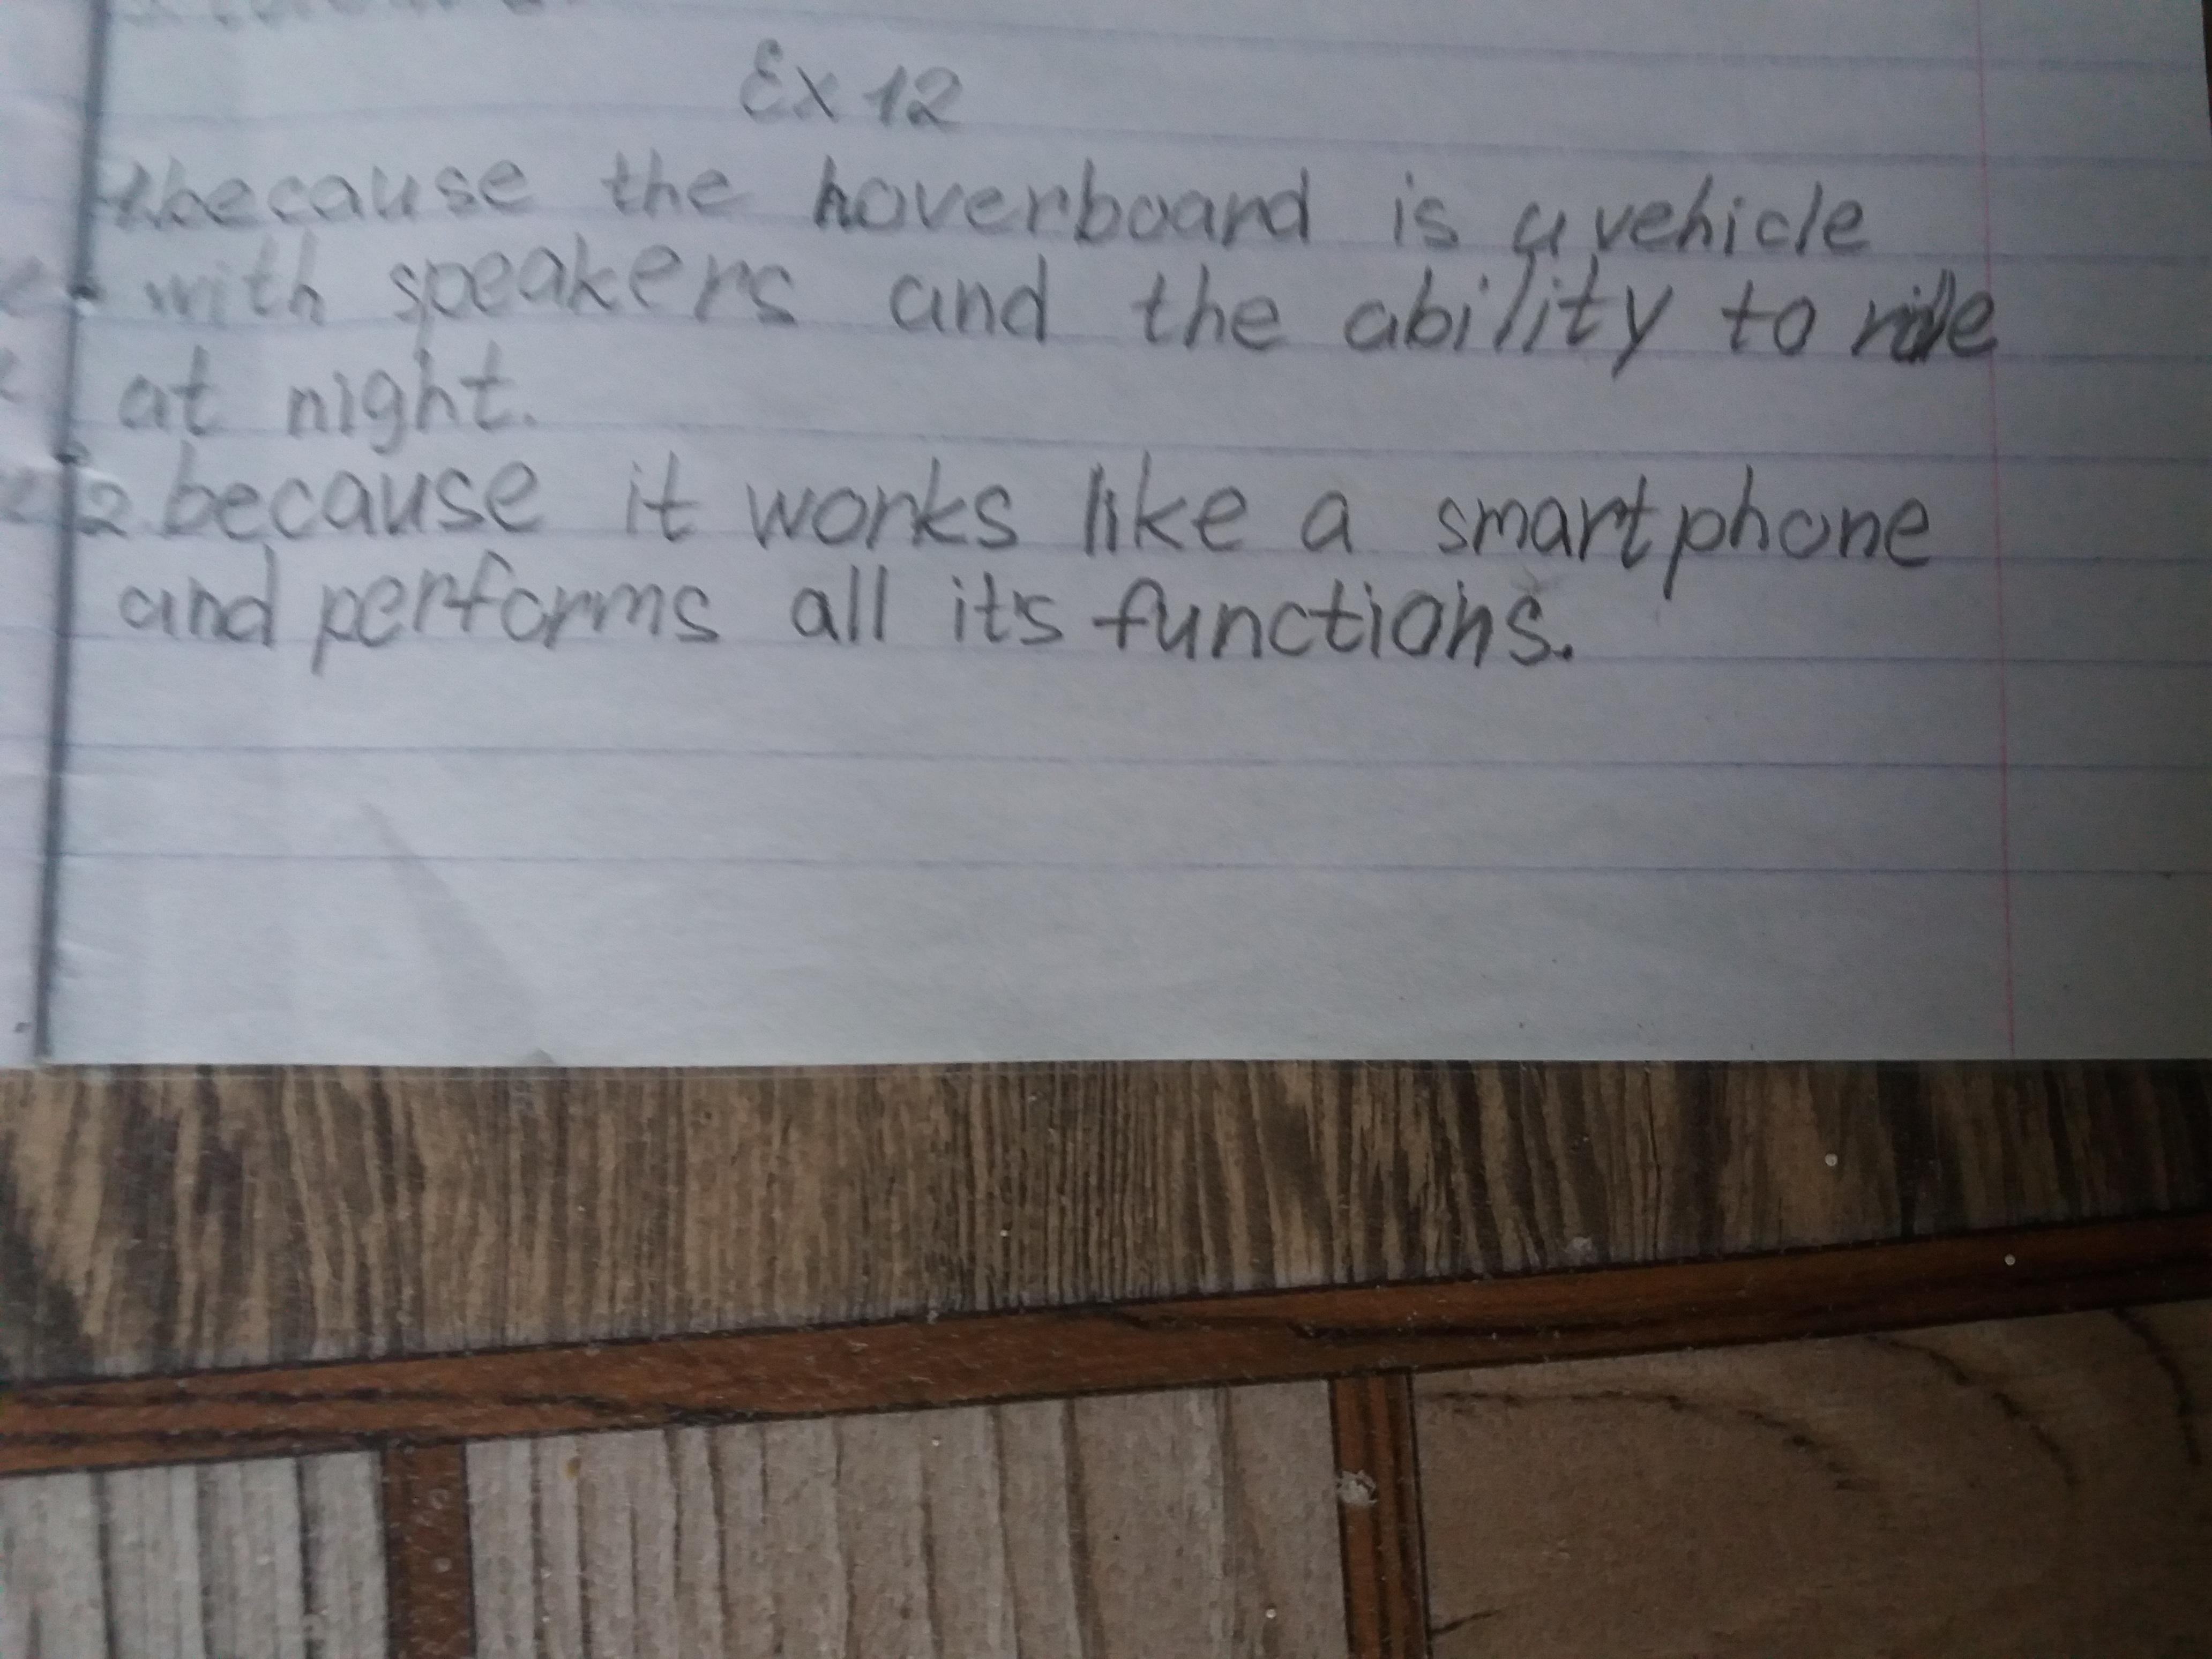 Ex 12
1.because the hoverboard is a vehicle
with speakers and the ability to ride
at night.
2.because it works like a smartphone
and performs all it's functions.